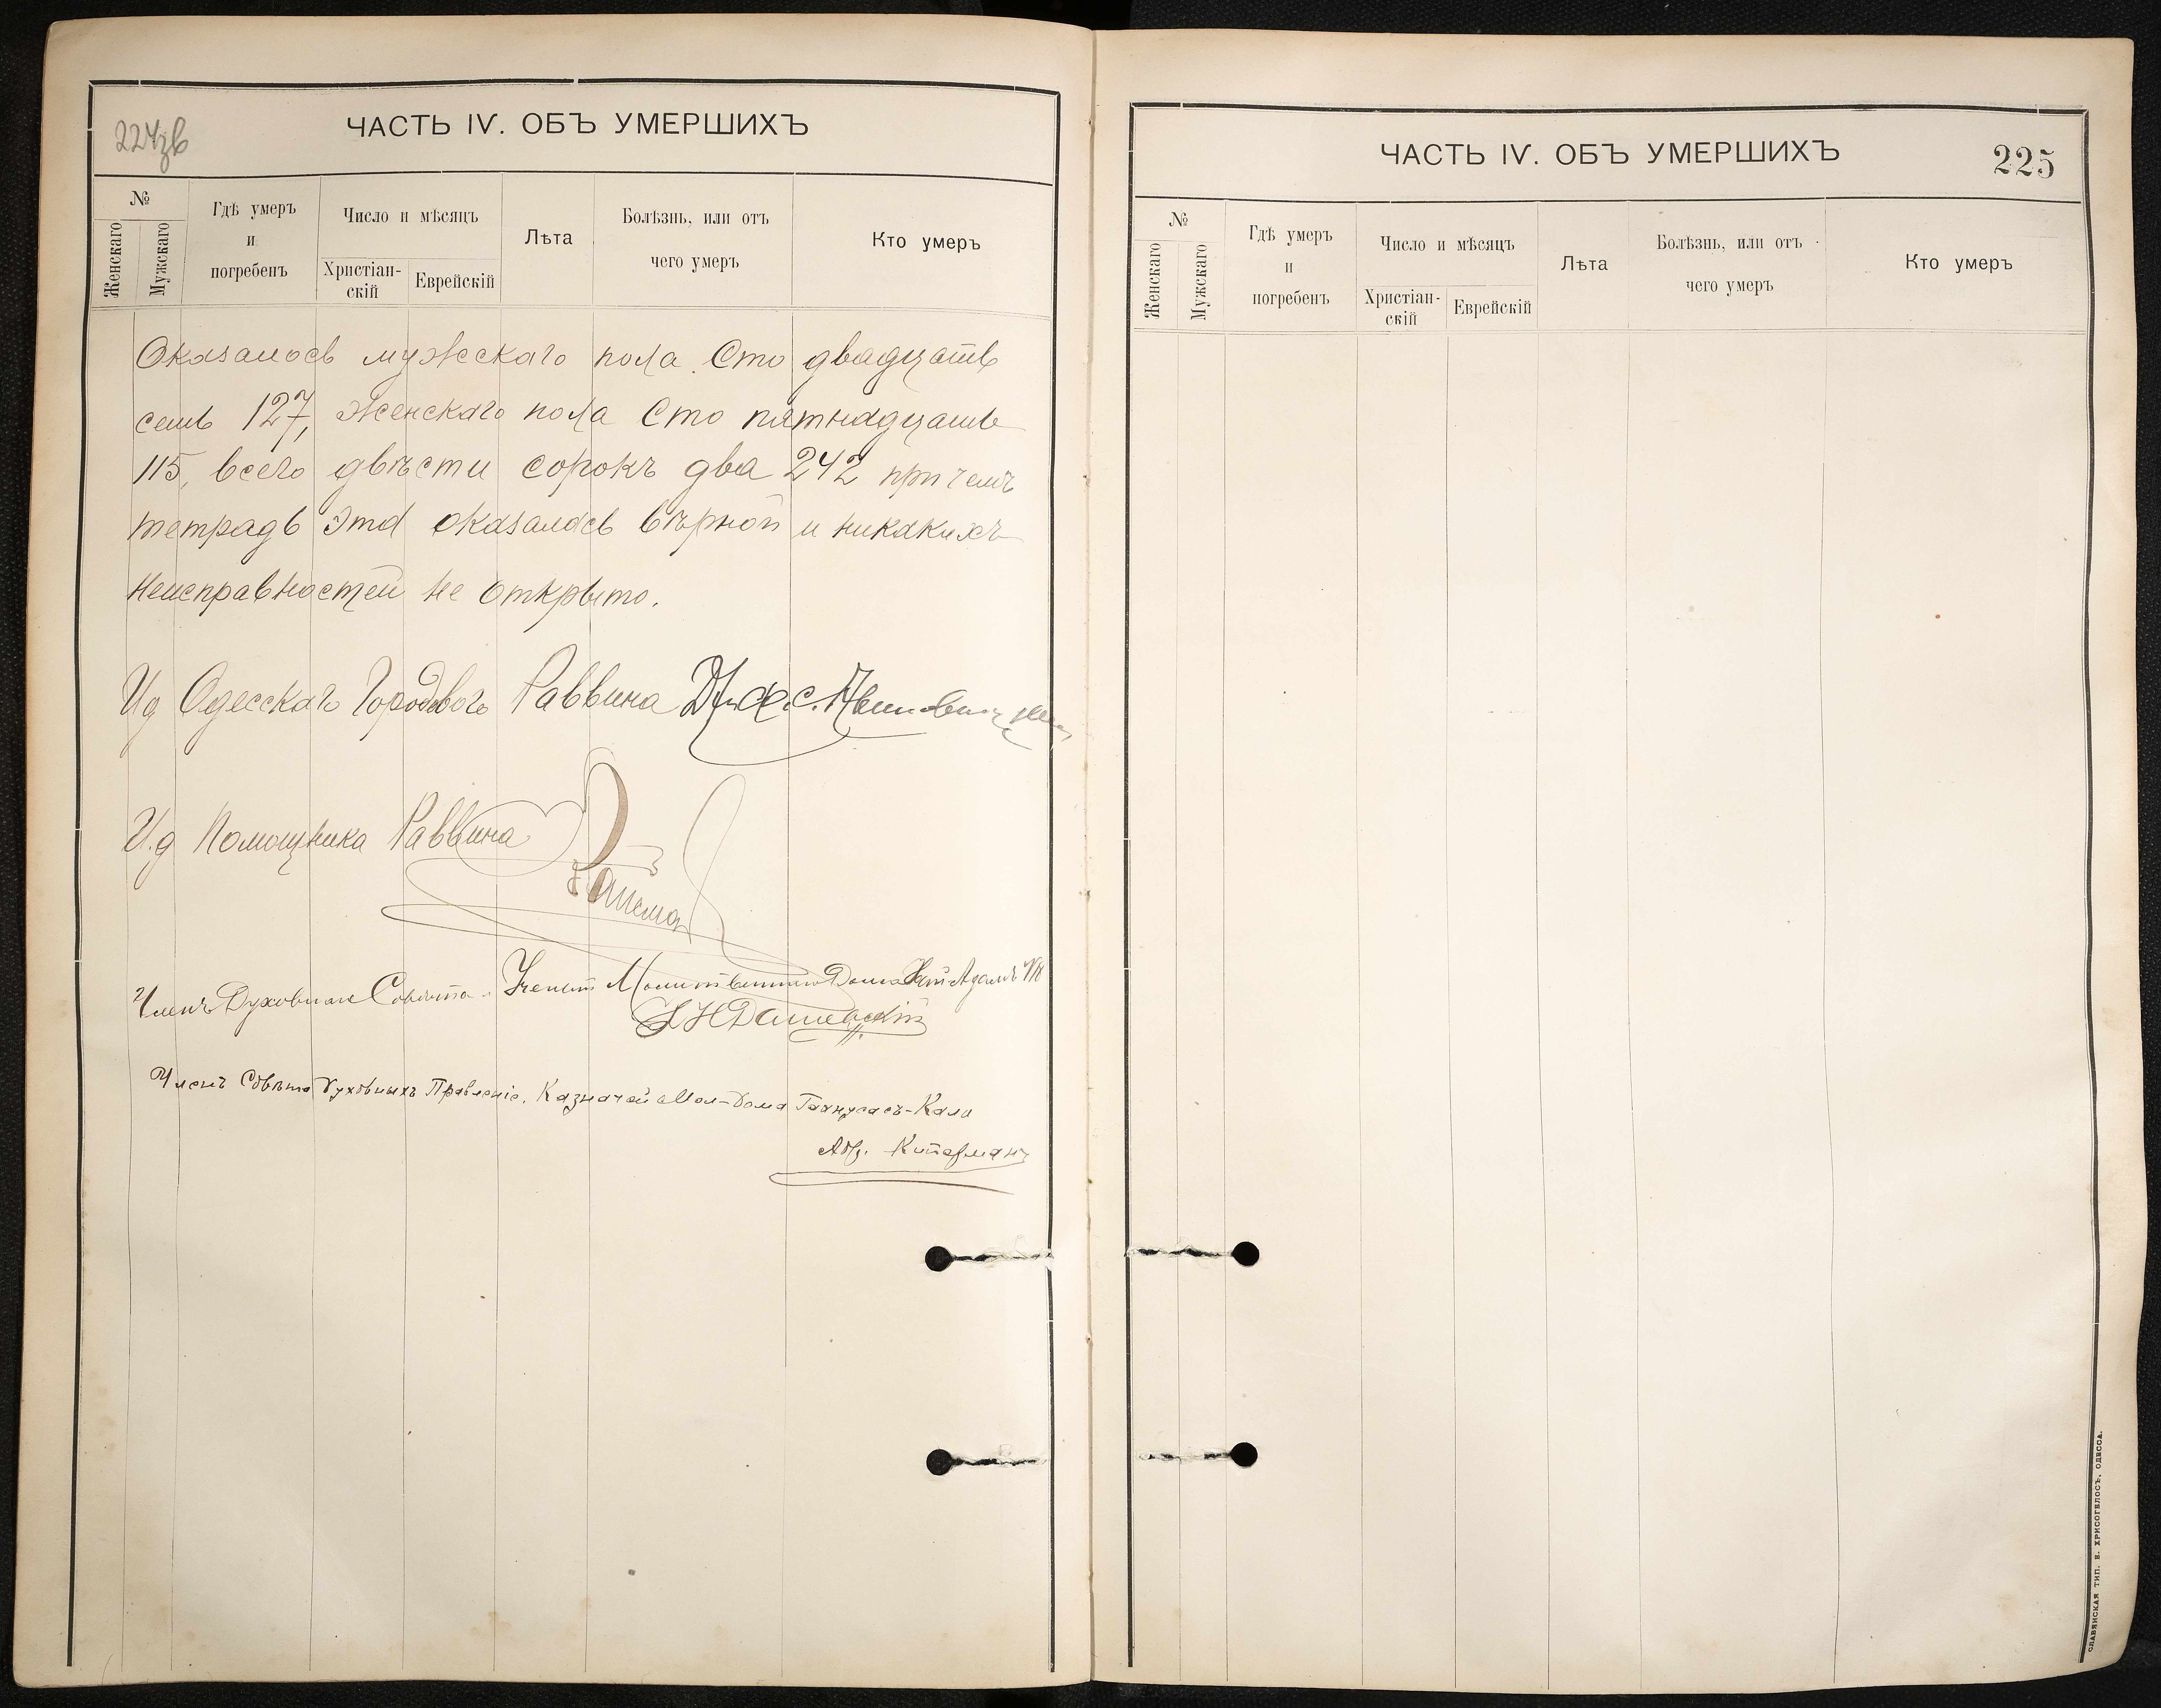 224зв
ЧАСТЬ IV. ОБЪ УМЕРШИХЪ
№
Женскаго
Мужскаго
Гдѣ умеръ
и
погребенъ
Число и мѣсяцъ
Христіан-
скій
Еврейскій
Лѣта
Болѣзнь, или отъ
чего умеръ
Кто умеръ
Оказалось мужескаго пола Сто двадцать
семь 127, женскаго пола Сто пятнадцать
115, всего двѣсти сорокъ два 242 при чемъ
тетрадь эта оказалось вѣрной и никакихъ
неисправностей не открыто.
Ид Одесскаго Городового Раввина
И.д Помощника Раввина
Членъ Духовнаго Совѣта
Дашевскій
Членъ Совѣта Духовныхъ Правленіе. Казначей Мол-Дома
Абр. Китерманъ
ЧАСТЬ IV. ОБЪ УМЕРШИХЪ
225
№
Женскаго
Мужскаго
Гдѣ умеръ
и
погребенъ
Число и мѣсяцъ
Христіан-
скій
Еврейскій
Лѣта
Болѣзнь, или отъ
чего умеръ
Кто умеръ
СЛАВЯНСКАЯ ТИП. Е. ХРИСОГЕЛОСЪ, ОДЕССА.